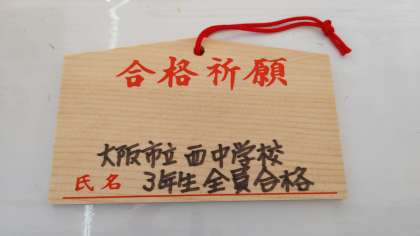 合格祈願
大阪市立西中学校
氏名 3年生全員合格